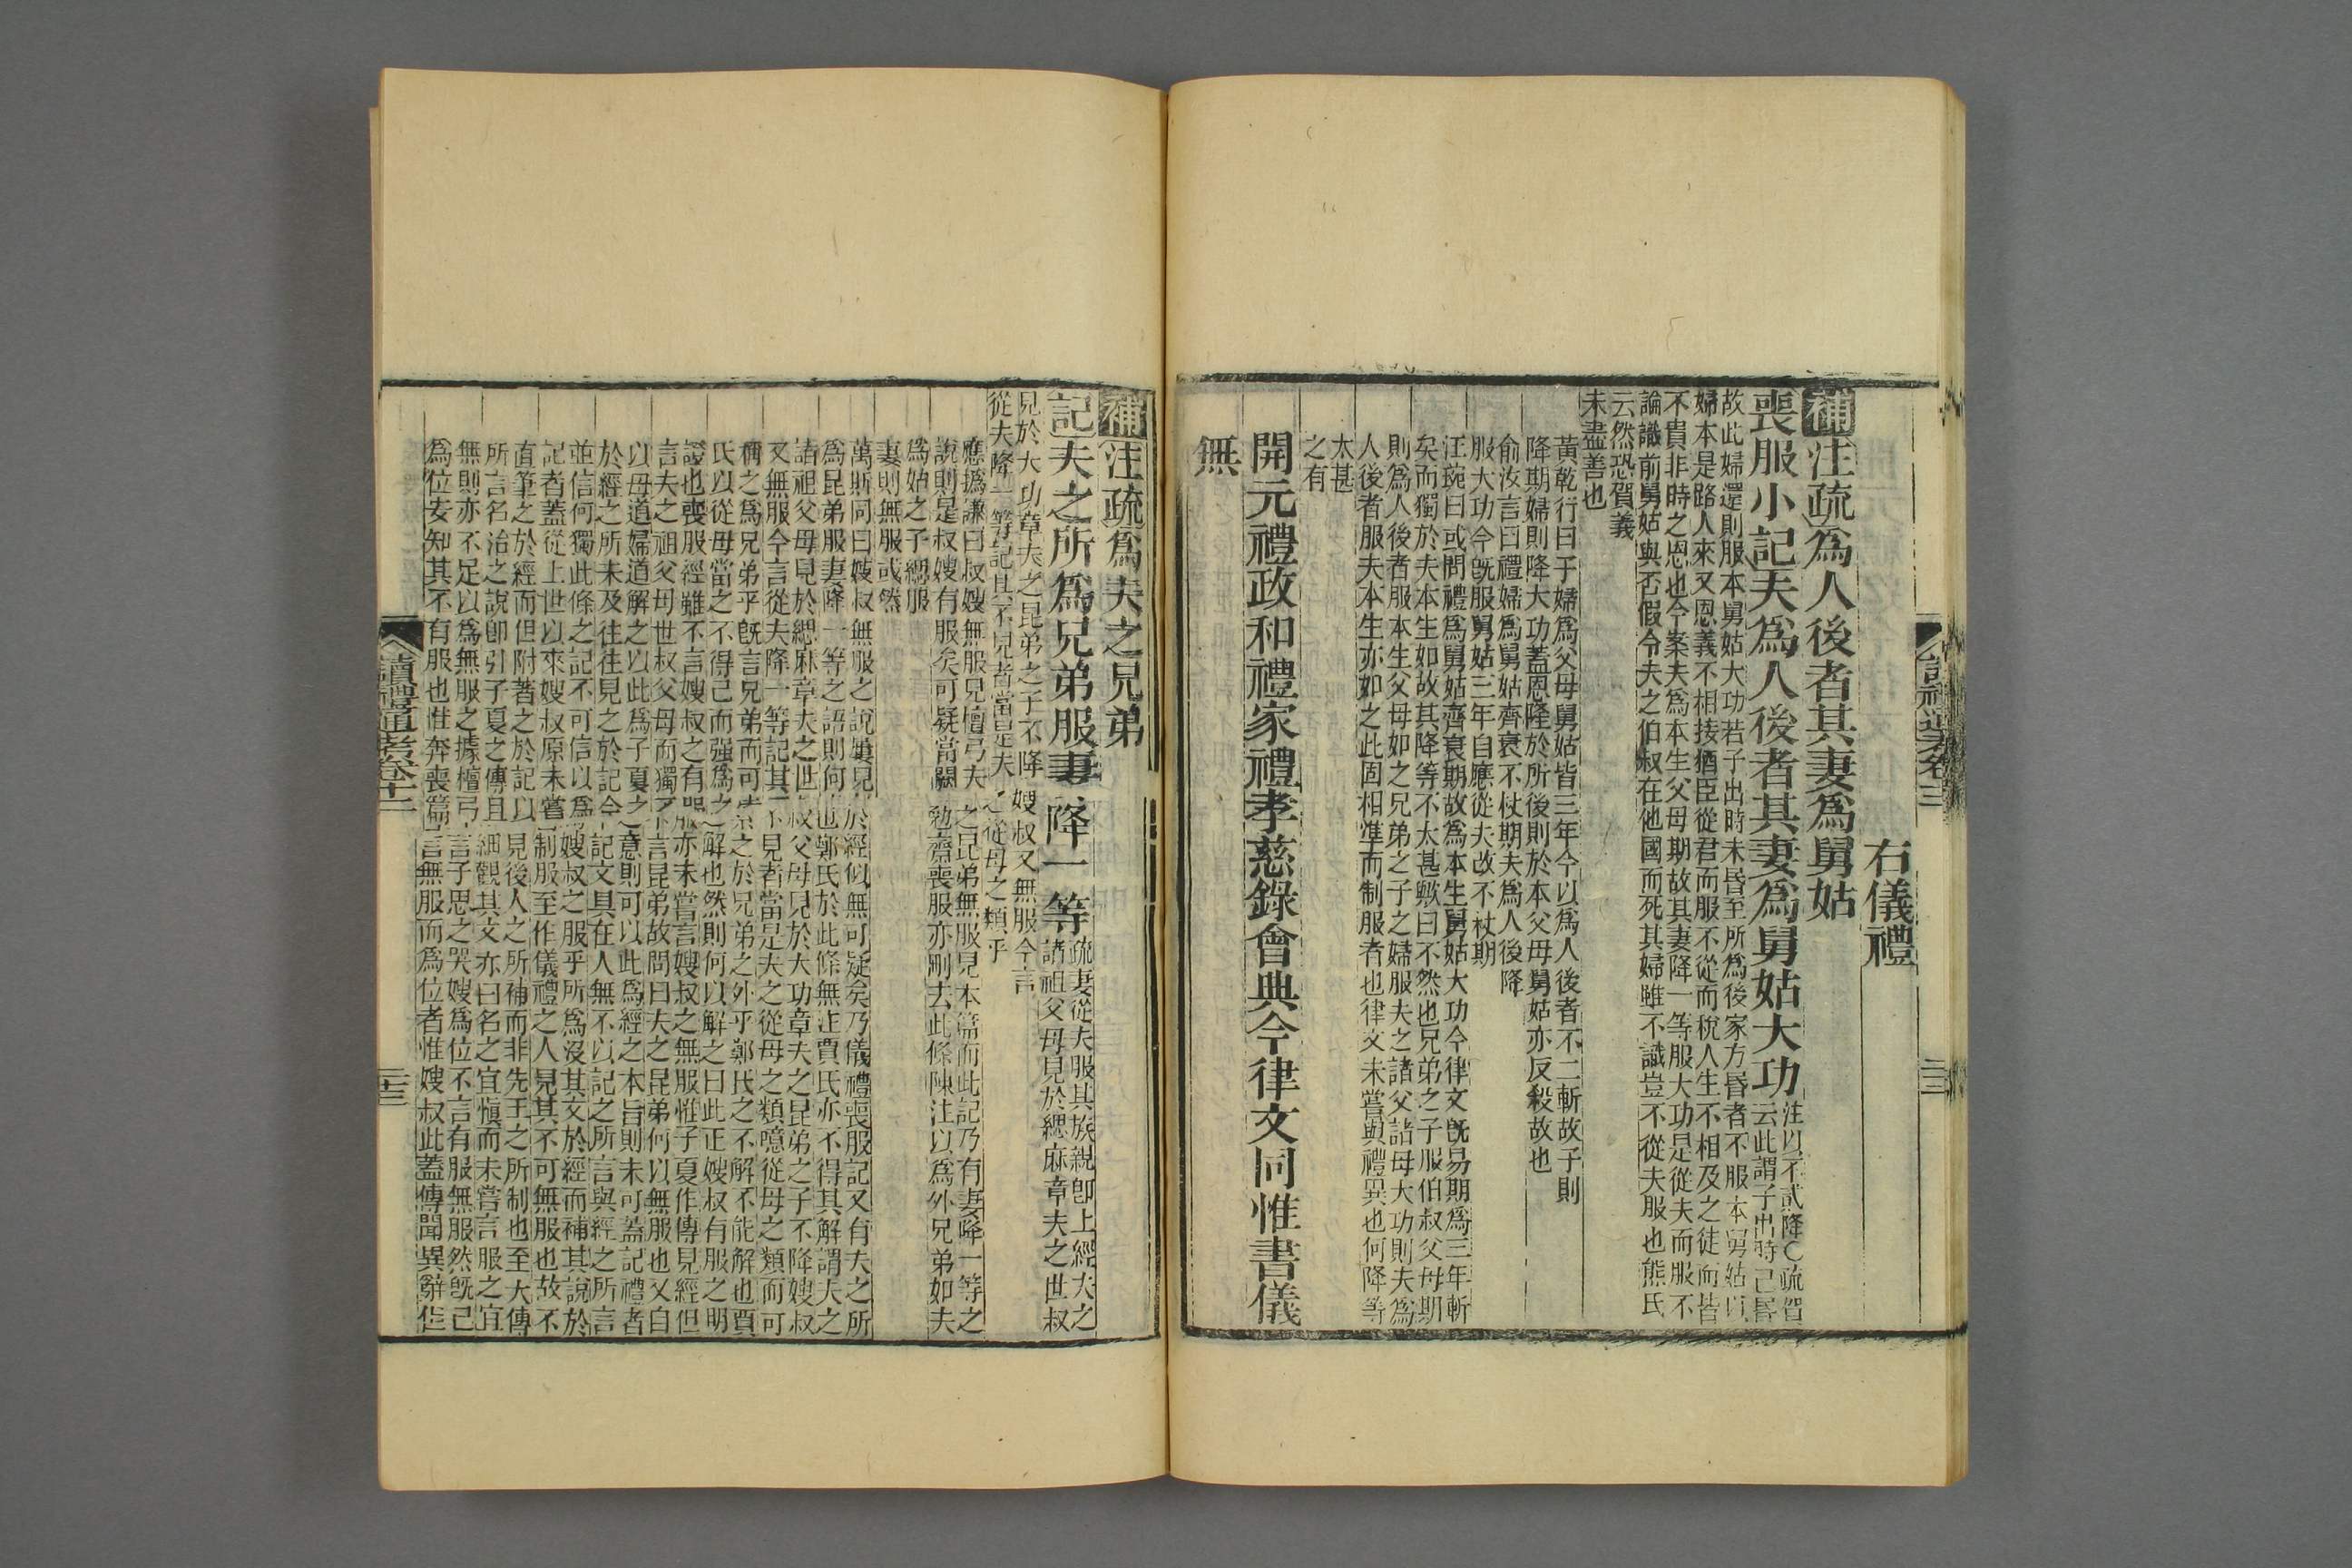 右儀禮
補注疏爲人後者其妻爲舅姑
喪服小記夫爲人後者其妻爲舅姑大功
注以不貳降〇疏賀
云此謂子出時已昏
故此婦還則服本舅姑大功若子出時未昏至所爲後家方昏者不服本舅姑以
婦本是路人來又恩義不相接猶臣從君而服不從而稅人生不相及之徒而皆
不責非時之恩也今案夫爲本生父母期故其妻降一等服大功是從夫而服不
論識前舅姑與否假令夫之伯叔在他國而死其婦雖不識豈不從夫服也熊氏
云然恐賀義
未盡善也
黃乾行曰子婦爲父母舅姑皆三年今以爲人後者不二斬故子則
降期婦則降大功蓋恩隆於所後則於本父母舅姑亦反殺故也
俞汝言曰禮婦爲舅姑齊衰不杖期夫爲人後降
服大功今旣服舅姑三年自應從夫改不杖期
汪琬曰或問禮爲舅姑齊衰期故爲本生舅姑大功今律文旣易期爲三年斬
矣而獨於夫本生如故其降等不太甚歟曰不然也兄弟之子服伯叔父母期
則爲人後者服本生父母如之兄弟之子之婦服夫之諸父諸母大功則夫爲
人後者服夫本生亦如之此固相準而制服者也律文未嘗與禮異也何降等
太甚
之有
開元禮政和禮家禮孝慈錄會典今律文同惟書儀
無
補注疏爲夫之兄弟
記夫之所爲兄弟服妻降一等
疏妻從夫服其族親卽上經夫之
諸祖父母見於緦麻章夫之世叔
見於大功章夫之昆弟之子不降嫂叔又無服今言
從夫降一等記其不見者當是夫之從母之類乎
應撝謙曰叔嫂無服見檀弓夫之昆弟無服見本篇而此記乃有妻降一等之
說則是叔嫂有服矣可疑當闕 勉齋喪服亦刪去此條陳注以爲外兄弟如夫
爲姑之子緦服
妻則無服或然
萬斯同曰嫂叔無服之說嬺見於經似無可疑矣乃儀禮喪服記又有夫之所
爲昆弟服妻降一等之語則何也鄭氏於此條無注賈氏亦不得其解謂夫之
諸祖父母見於緦麻章夫之世叔父母見於大功章夫之昆弟之子不降嫂叔
又無服今言從夫降一等記其不見者當是夫之從母之類噫從母之類而可
稱之爲兄弟乎旣言兄弟而可索之於兄弟之外乎鄭氏之不解不能解也賈
氏以從母當之不得已而強爲之解也然則何以解之曰此正嫂叔有服之明
證也喪服經雖不言嫂叔之有服亦未嘗言嫂叔之無服惟子夏作傳見經但
言夫之祖父母世叔父母而獨不言昆弟故問曰夫之昆弟何以無服也又自
以母道婦道解之以此爲子夏之意則可以此爲經之本旨則未可蓋記禮者
於經之所未及往往見之於記今記文具在人無不以記之所言與經之所言
並信何獨此條之記不可信以爲嫂叔之服乎所爲沒其文於經而補其說於
記者蓋從上世以來嫂叔原未嘗制服至作儀禮之人見其不可無服也故不
直筆之於經而但附著之於記以見後人之所補而非先王之所制也至大傳
所言名治之說卽引子夏之傳且細觀其文亦曰名之宜愼而未嘗言服之宜
無則亦不足以爲無服之據檀弓言子思之哭嫂爲位不言有服無服然旣已
爲位安知其不有服也惟奔喪篇言無服而爲位者惟嫂叔此蓋傳聞異辭
讀禮通考卷十一
二十三